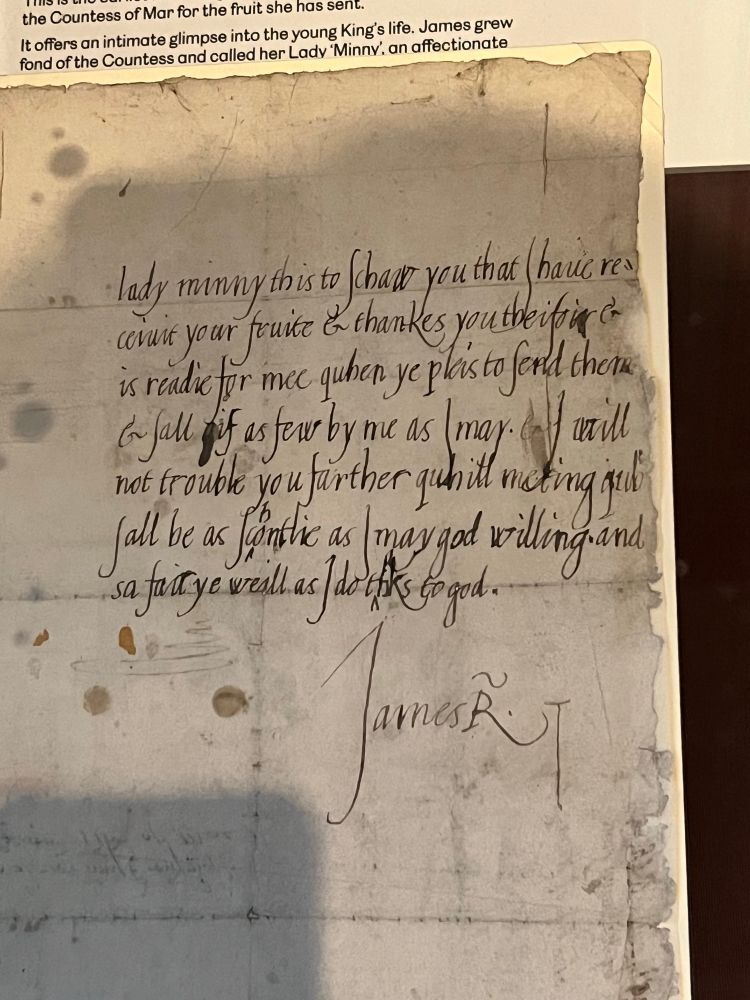 This is the
the Countess of Mar for the fruit she has sent.
It offers an intimate glimpse into the young King's life. James grew
fond of the Countess and called her Lady ‘Minny’, an affectionate
lady minny this to schaw you that I haue re
ceiuit your fruite & thankes you theifoir &
is readie for mee quhen ye pleis to send them
& sall gif as few by me as I may. & I will
not trouble you farther quhill meting quh
sall be as schortlie as I may god willing. and
sa fair ye weill as I do thks to god.
James R.